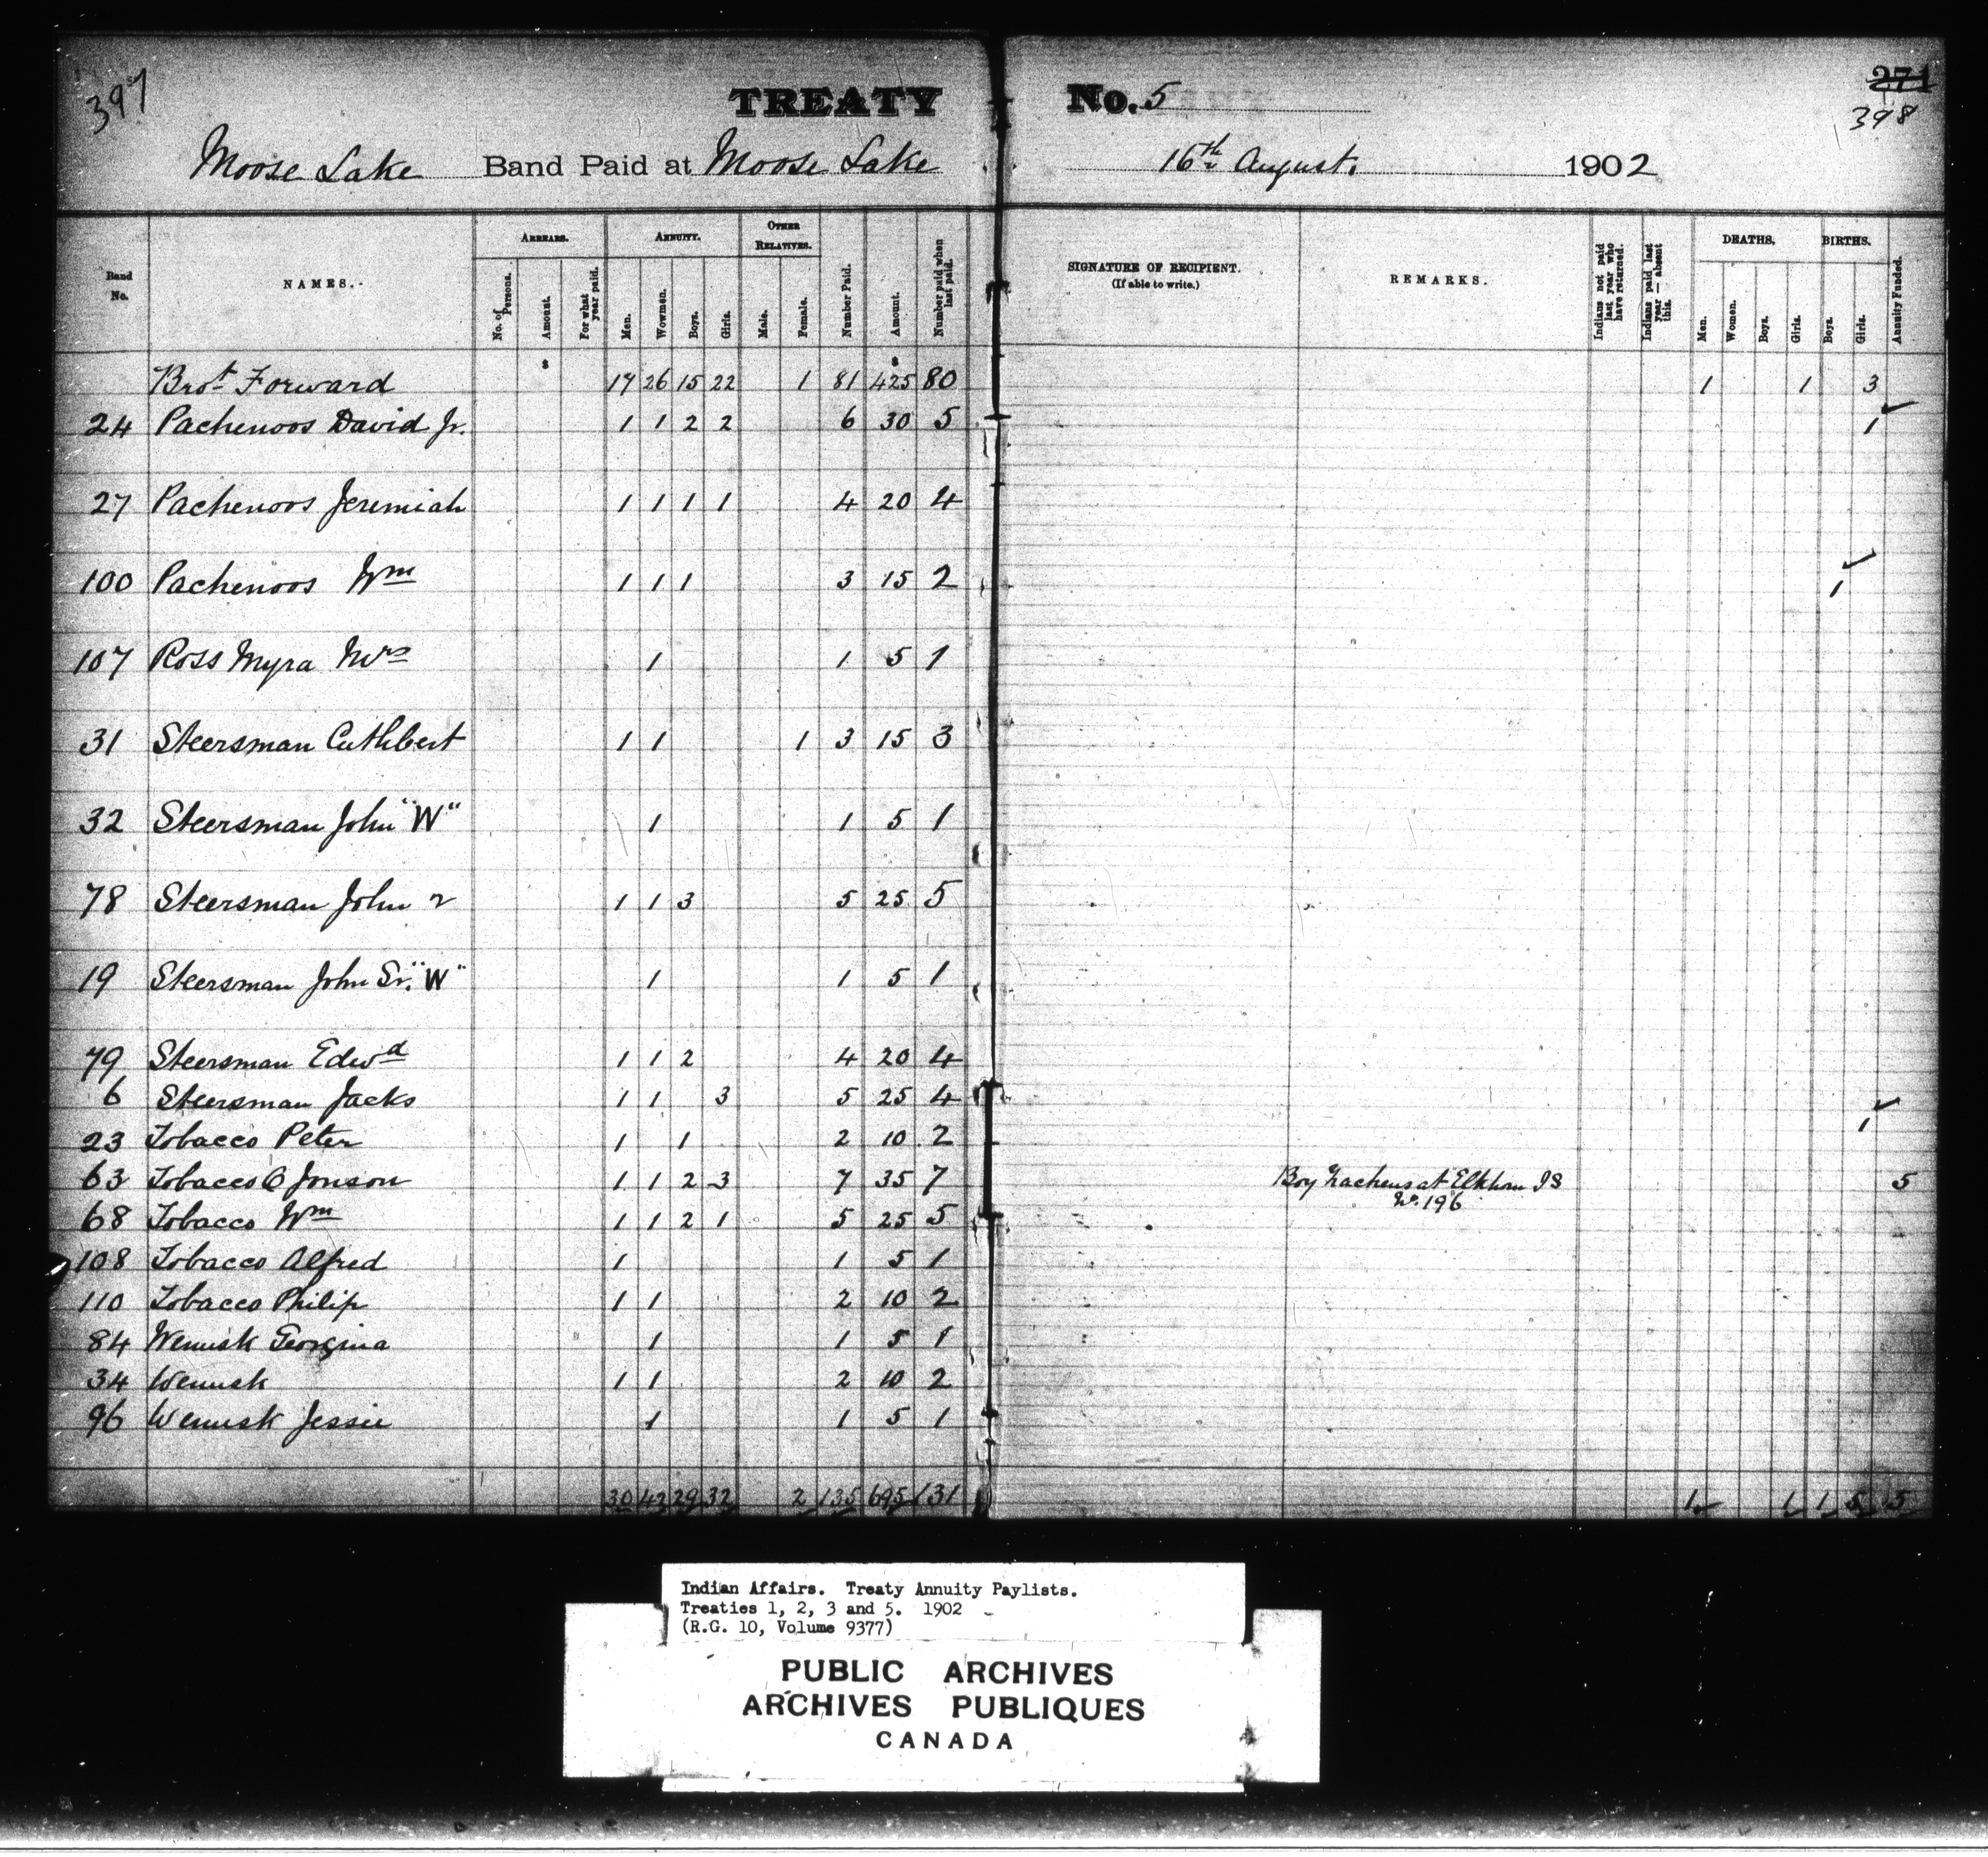 397
TREATY No. 5
271
398
Moose Lake Band Paid at Moose Lake 16th August. 1902
Band No. NAMES. ARREARS. No. of Persons. Amount. For what year paid. ANNUITY. Men. Wowmen. Boys. Girls. OTHER RELATIVES. Male. Female. Number Paid. Amount. Number paid when last paid. SIGNATURE OF RECIPIENT. (If able to write.) REMARKS. Indians not paid last year who have returned. Indians paid last year — absent this. DEATHS. Men. Women. Boys. Girls. BIRTHS. Boys. Girls. Annuity Funded.
$ $
Brot Forward 17 26 15 22 1 81 425 80 1 1 3
24 Pachenoos David Jr. 1 1 2 2 6 30 5 1
27 Pachenoos Jeremiah 1 1 1 1 4 20 4
100 Pachenoos Wm 1 1 1 3 15 2 1
107 Ross Myra Mrs 1 1 5 1
31 Steersman Cuthbert 1 1 1 3 15 3
32 Steersman John "W" 1 1 5 1
78 Steersman John 2 1 1 3 5 25 5
19 Steersman John Sr. "W" 1 1 5 1
79 Steersman Edwd 1 1 2 4 20 4
6 Steersman Jacks 1 1 3 5 25 4 1
23 Tobacco Peter 1 1 2 10 2
63 Tobacco O Jonson 1 1 2 3 7 35 7 Boy Zacheus at Elkhorn I S 5
No. 196
68 Tobacco Wm 1 1 2 1 5 25 5
108 Tobacco Alfred 1 1 5 1
110 Tobacco Philip 1 1 2 10 2
84 Wenusk Georgina 1 1 5 1
34 Wenusk 1 1 2 10 2
96 Wenusk Jessie 1 1 5 1
30 42 29 32 2 135 695 131 1 1 1 5 5
Indian Affairs. Treaty Annuity Paylists.
Treaties 1, 2, 3 and 5. 1902
(R.G. 10, Volume 9377)
PUBLIC ARCHIVES
ARCHIVES PUBLIQUES
CANADA